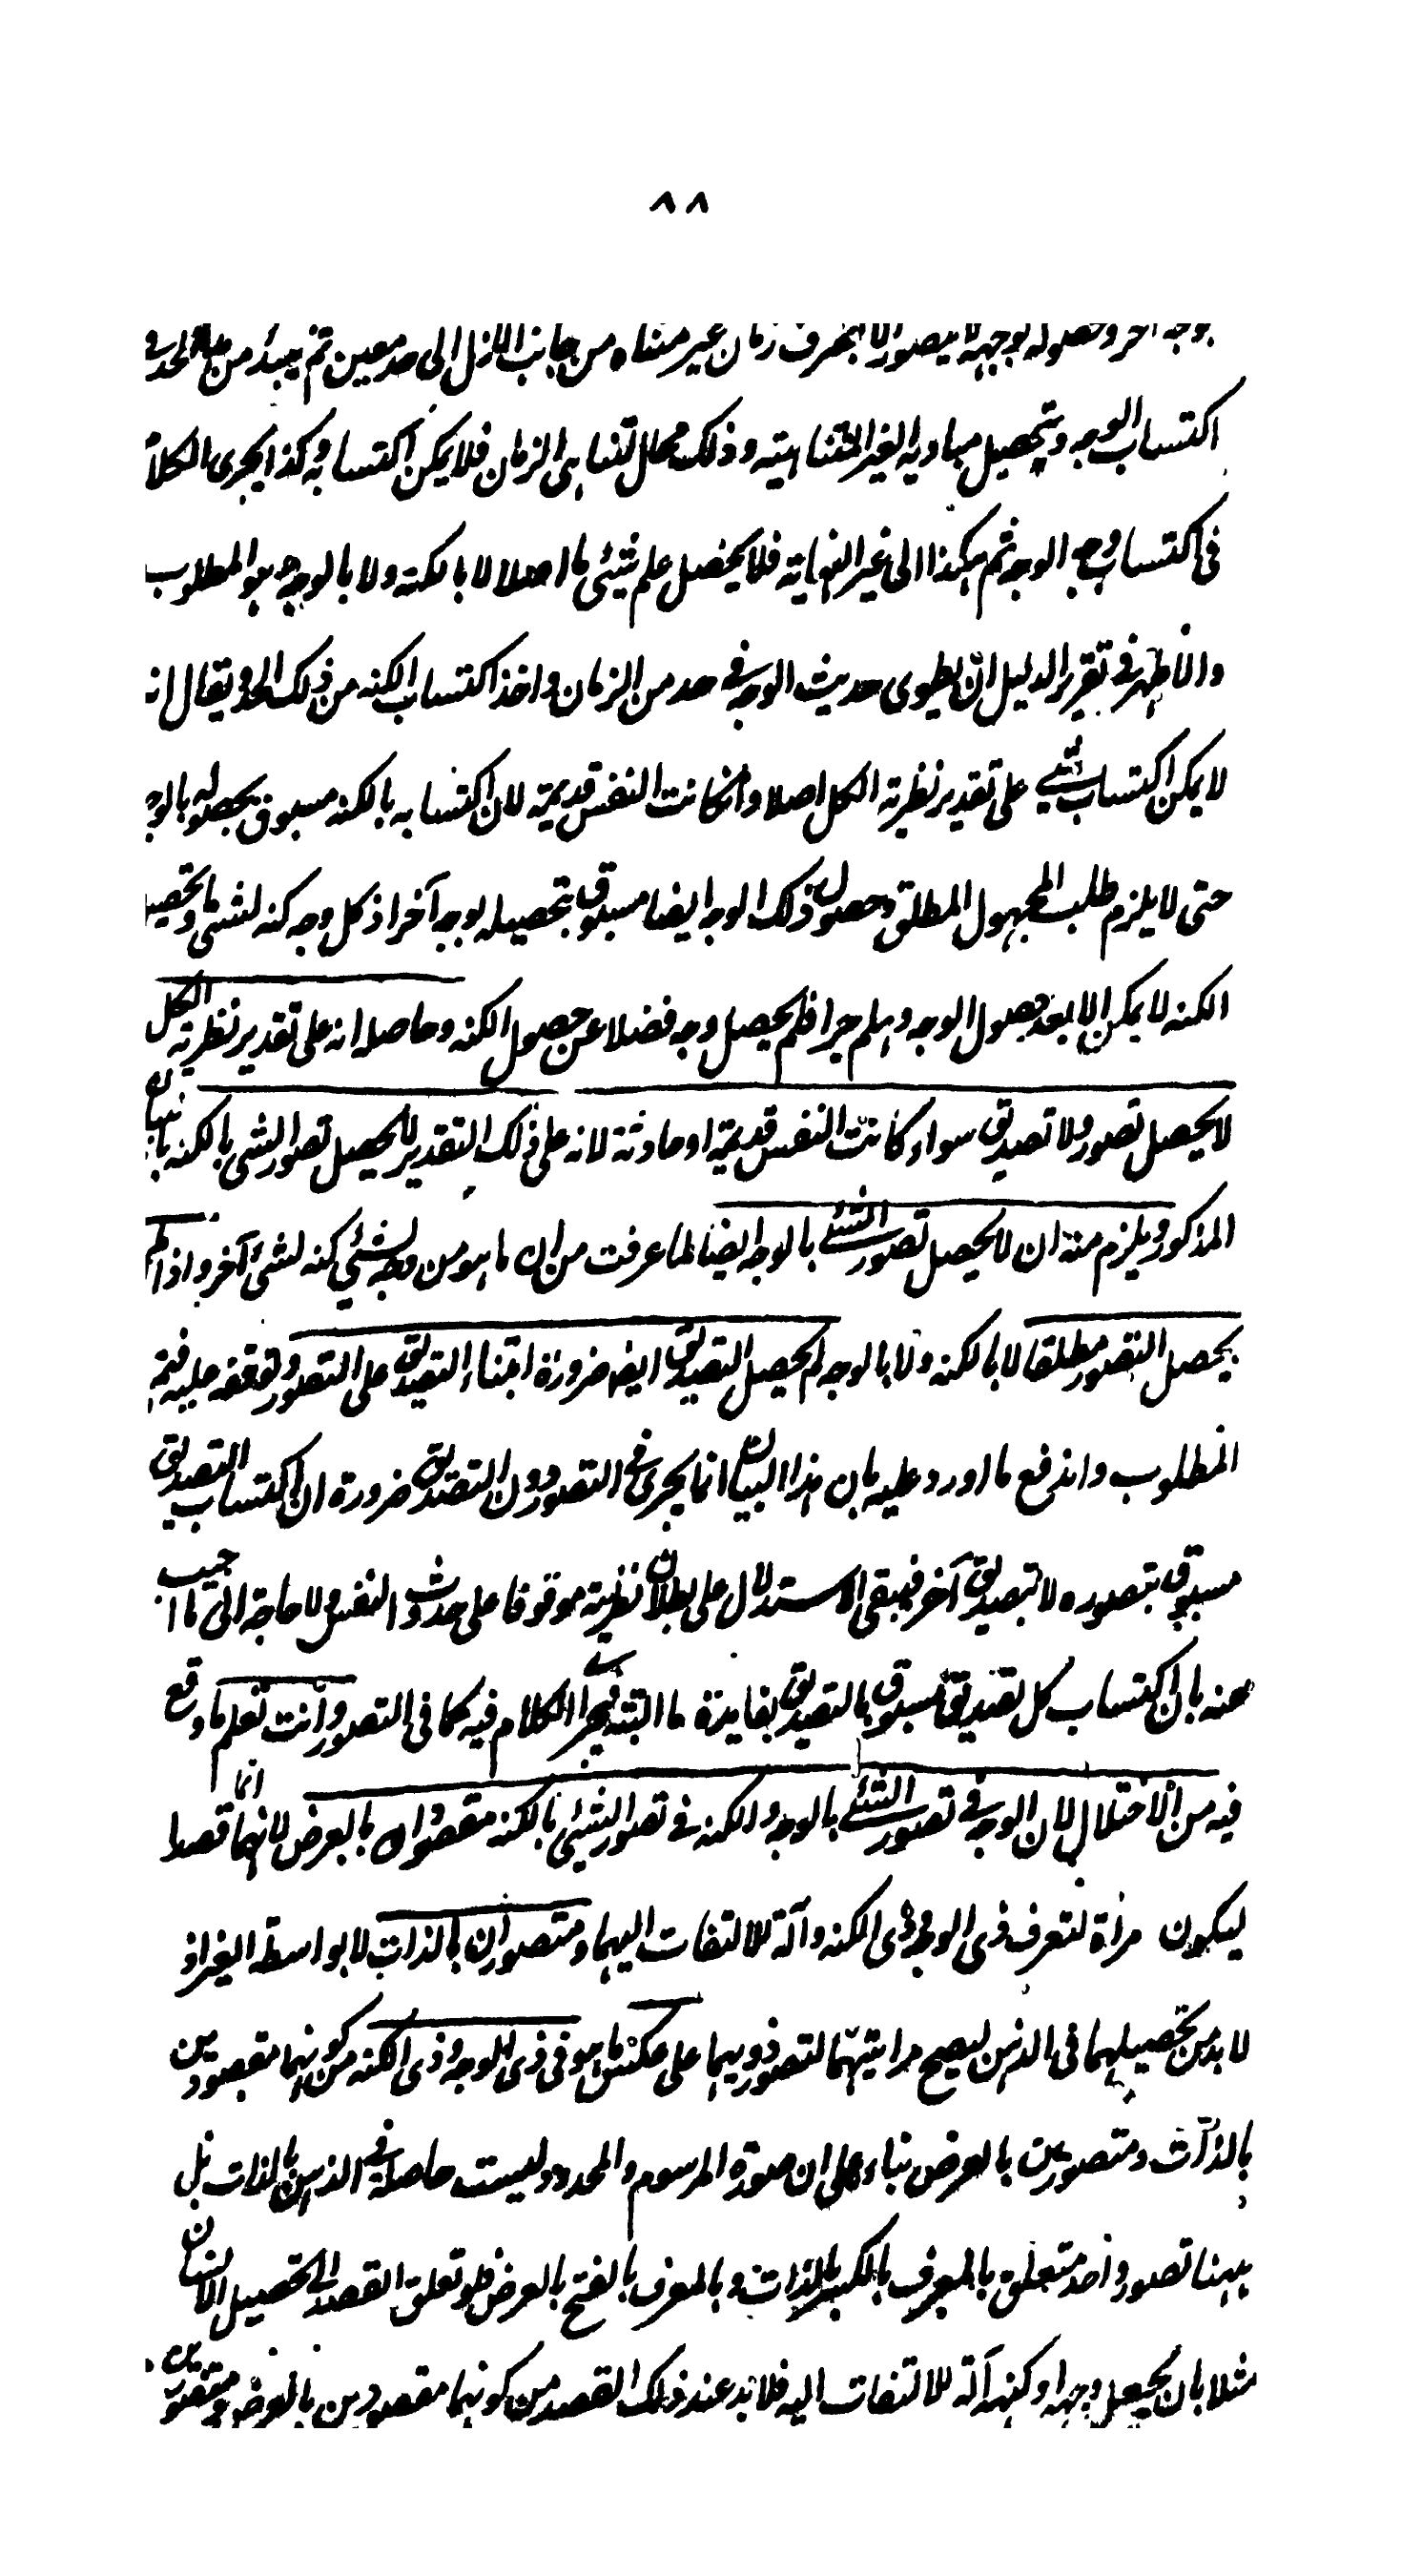 ٨٨
بوجه آخر وحصوله بوجهه لا يتصور الا بصرف زمان غير متناه من جانب الازل الى حد معين ثم يبتدأ من هذا الحد في
اكتساب الوجه وتحصيل مباديه الغير المتناهية وذلك محال لتناهى الزمان فلا يمكن اكتسابه وكذا يجرى الكلام
فى اكتساب وجه الوجه ثم هكذا الى غير النهاية فلا يحصل علم شيئى ما اصلا لا بالكنه ولا بالوجه وهو المطلوب
والاظهر في تقرير الدليل ان يطوى حديث الوجه في حد من الزمان واخذ اكتساب الكنه من ذلك الحد ويقال انه
لا يمكن اكتساب شيئے على تقدير نظرية الكل اصلا وانكانت النفس قديمة لان اكتسابه بالكنه مسبوق بحصوله بالوجه
حتى لا يلزم طلب المجهول المطلق وحصول ذلك الوجه ايضا مسبوق بتحصيله بوجه آخر اذ كل وجه كنه لشئى وتحصيل
الكنه لا يمكن الا بعد حصول الوجه وهلم جرا فلم يحصل وجه فضلا عن حصول الكنه وحاصله انه على تقدير نظرية الكل
لا يحصل تصور ولا تصديق سواء كانت النفس قديمة او حادثة لانه على ذلك التقدير لا يحصل تصور الشى بالكنه بالبيان
المذكور ويلزم منه ان لا يحصل تصور الشئے بالوجه ايضا لما عرفت من ان ما هو من وجه لشئي كنه لشئ آخر واذا لم
يحصل التصور مطلقا لا بالكنه ولا بالوجه لم يحصل التصديق ايضا ضرورة ابتناء التصديق على التصور وتوقفه عليه فيتم
المطلوب واندفع ما اورد عليه بان هذا البيان انما يجرى في التصور دون التصديق ضرورة ان اكتساب التصديق
مسبوق بتصوره لا بتصديق آخر فيبقى الاستدلال على بطلان نظريته موقوفا على حدوث النفس ولا حاجة الى ما اجيب
عنه بان اكتساب كل تصديق مسبوق بالتصديق بفايدة ما البتة فيجرے الكلام فيه كما فى التصور وانت تعلم ما وقع
فيه من الاختلال لان الوجه في تصور الشئے بالوجه والكنه في تصور الشيئى بالكنه مقصودان بالعرض لانهما انما قصدا
ليكون مرأة لتعرف ذى الوجه وذى الكنه وآلة للالتفات اليهما ومتصوران بالذات لا بواسطة الغير اذ
لا بد من تحصيلهما فى الذهن ليصح مرايتهما لتصور ذويهما على عكس ما هو فى ذى الوجه وذى الكنه من كونهما مقصودين
بالذات ومتصورين بالعرض بناء على ان صورة المرسوم والمحدود ليست حاصلة في الذهن بالذات بل
ههنا تصور واحد متعلق بالمعرف بالكسر بالذات وبالمعرف بالفتح بالعرض فلو تعلق القصد الى تحصيل الانسان
مثلا بان يجعل وجهه او كنهه آلة للالتفات اليه فلا بد عند ذلك القصد من كونهما مقصودين بالعرض ومتصورين